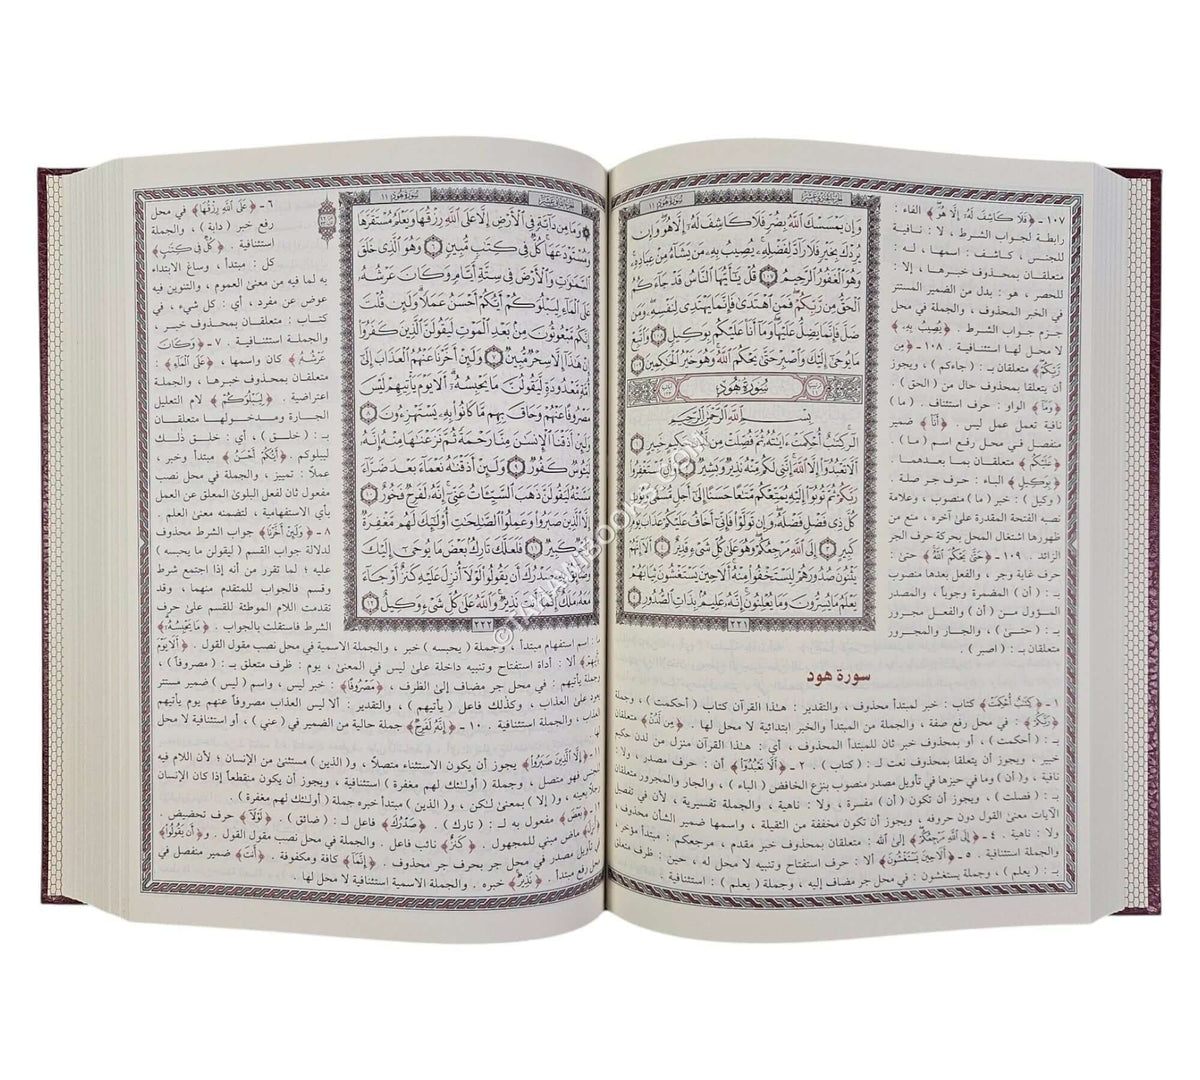 سورة هود ١١
وَإِن يَمْسَسْكَ ٱللَّهُ بِضُرٍّ فَلَا كَاشِفَ لَهُۥٓ إِلَّا هُوَ وَإِن
يُرِدْكَ بِخَيْرٍ فَلَا رَآدَّ لِفَضْلِهِۦ يُصِيبُ بِهِۦ مَن يَشَآءُ مِنْ عِبَادِهِۦ
وَهُوَ ٱلْغَفُورُ ٱلرَّحِيمُ ١٠٧ قُلْ يَٰٓأَيُّهَا ٱلنَّاسُ قَدْ جَآءَكُمُ
ٱلْحَقُّ مِن رَّبِّكُمْ فَمَنِ ٱهْتَدَىٰ فَإِنَّمَا يَهْتَدِى لِنَفْسِهِۦ وَمَن
ضَلَّ فَإِنَّمَا يَضِلُّ عَلَيْهَا وَمَآ أَنَا۠ عَلَيْكُم بِوَكِيلٍ ١٠٨ وَٱتَّبِعْ
مَا يُوحَىٰٓ إِلَيْكَ وَٱصْبِرْ حَتَّىٰ يَحْكُمَ ٱللَّهُ وَهُوَ خَيْرُ ٱلْحَٰكِمِينَ ١٠٩
سُورَةُ هُودٍ
بِسْمِ ٱللَّهِ ٱلرَّحْمَٰنِ ٱلرَّحِيمِ
الٓر كِتَٰبٌ أُحْكِمَتْ ءَايَٰتُهُۥ ثُمَّ فُصِّلَتْ مِن لَّدُنْ حَكِيمٍ خَبِيرٍ ١
أَلَّا تَعْبُدُوٓا۟ إِلَّا ٱللَّهَ إِنَّنِى لَكُم مِّنْهُ نَذِيرٌ وَبَشِيرٌ ٢ وَأَنِ ٱسْتَغْفِرُوا۟
رَبَّكُمْ ثُمَّ تُوبُوٓا۟ إِلَيْهِ يُمَتِّعْكُم مَّتَٰعًا حَسَنًا إِلَىٰٓ أَجَلٍ مُّسَمًّى وَيُؤْتِ
كُلَّ ذِى فَضْلٍ فَضْلَهُۥ وَإِن تَوَلَّوْا۟ فَإِنِّىٓ أَخَافُ عَلَيْكُمْ عَذَابَ يَوْمٍ
كَبِيرٍ ٣ إِلَى ٱللَّهِ مَرْجِعُكُمْ وَهُوَ عَلَىٰ كُلِّ شَىْءٍ قَدِيرٌ ٤ أَلَآ إِنَّهُمْ
يَثْنُونَ صُدُورَهُمْ لِيَسْتَخْفُوا۟ مِنْهُ أَلَا حِينَ يَسْتَغْشُونَ ثِيَابَهُمْ
يَعْلَمُ مَا يُسِرُّونَ وَمَا يُعْلِنُونَ إِنَّهُۥ عَلِيمٌۢ بِذَاتِ ٱلصُّدُورِ ٥
٢٢١
١٠٧- ﴿فَلَا كَاشِفَ لَهُۥٓ إِلَّا هُوَ﴾ الفاء :
رابطة لجواب الشرط . لا : نافية
للجنس ، كاشف : اسمها ، له :
متعلقان بمحذوف خبرها . إلا :
للحصر ، هو : بدل من الضمير المستتر
في الخبر المحذوف ، والجملة في محل
جزم جواب الشرط . ﴿يُصِيبُ بِهِۦ﴾ .
لا محل لها استئنافية . ١٠٨- ﴿مِن
رَّبِّكُمْ﴾ متعلقان بـ : (جاءكم) ، ويجوز
أن يتعلقا بمحذوف حال من (الحق) .
﴿وَمَآ﴾ الواو : حرف استئناف . (ما)
نافية تعمل عمل ليس . ﴿أَنَا۠﴾ ضمير
منفصل في محل رفع اسم (ما) .
﴿عَلَيْكُم﴾ متعلقان بما بعدهما .
﴿بِوَكِيلٍ﴾ الباء : حرف جر صلة .
(وكيل) : خبر (ما) منصوب ، وعلامة
نصبه الفتحة المقدرة على آخره ، منع من
ظهورها اشتغال المحل بحركة حرف الجر
الزائد . ١٠٩- ﴿حَتَّىٰ يَحْكُمَ ٱللَّهُ﴾ حتى :
حرف غاية وجر ، والفعل بعدها منصوب
بـ : (أن) المضمرة وجوباً ، والمصدر
المسؤول من (أن) والفعل مجرور
بـ : (حتى) ، والجار والمجرور
متعلقان بـ : (اصبر) .
سورة هود
١- ﴿كِتَٰبٌ أُحْكِمَتْ﴾ كتاب : خبر لمبتدأ محذوف ، والتقدير : هذا القرآن كتاب (أحكمت) ، وجملة
(أحكمت) : في محل رفع صفة ، والجملة من المبتدأ والخبر ابتدائية لا محل لها . ﴿مِن لَّدُنْ﴾ متعلقان
بـ : (أحكمت) ، أو بمحذوف خبر ثان للمبتدأ المحذوف ، أي : هذا القرآن منزل من لدن حكيم
خبير ، ويجوز أن يتعلقا بمحذوف نعت لـ : (كتاب) . ٢- ﴿أَلَّا تَعْبُدُوٓا۟﴾ أن : حرف مصدر ، ولا :
نافية ، و (أن) وما في حيزها في تأويل مصدر منصوب بنزع الخافض (الباء) ، والجار والمجرور متعلقان
بـ : (فصلت) ، ويجوز أن تكون (أن) مفسرة ، ولا : ناهية ، والجملة تفسيرية ، لأن في تفصيل
الآيات معنى القول دون حروفه ، ويجوز أن تكون مخففة من الثقيلة ، واسمها ضمير الشأن محذوف
ولا : ناهية . ٤- ﴿إِلَى ٱللَّهِ مَرْجِعُكُمْ﴾ إلى الله : متعلقان بمحذوف خبر مقدم ، مرجعكم : مبتدأ مؤخر ،
والجملة استئنافية . ٥- ﴿أَلَا حِينَ يَسْتَغْشُونَ﴾ ألا : حرف استفتاح وتنبيه لا محل له ، حين : ظرف متعلق
بـ : (يعلم) ، وجملة يستغشون : في محل جر مضاف إليه ، وجملة (يعلم) : استئنافية .
سورة هود ١١
وَمَا مِن دَآبَّةٍ فِى ٱلْأَرْضِ إِلَّا عَلَى ٱللَّهِ رِزْقُهَا وَيَعْلَمُ مُسْتَقَرَّهَا
وَمُسْتَوْدَعَهَا كُلٌّ فِى كِتَٰبٍ مُّبِينٍ ٦ وَهُوَ ٱلَّذِى خَلَقَ
ٱلسَّمَٰوَٰتِ وَٱلْأَرْضَ فِى سِتَّةِ أَيَّامٍ وَكَانَ عَرْشُهُۥ
عَلَى ٱلْمَآءِ لِيَبْلُوَكُمْ أَيُّكُمْ أَحْسَنُ عَمَلًا وَلَئِن قُلْتَ
إِنَّكُم مَّبْعُوثُونَ مِنۢ بَعْدِ ٱلْمَوْتِ لَيَقُولَنَّ ٱلَّذِينَ كَفَرُوٓا۟
إِنْ هَٰذَآ إِلَّا سِحْرٌ مُّبِينٌ ٧ وَلَئِنْ أَخَّرْنَا عَنْهُمُ ٱلْعَذَابَ إِلَىٰٓ
أُمَّةٍ مَّعْدُودَةٍ لَّيَقُولُنَّ مَا يَحْبِسُهُۥٓ أَلَا يَوْمَ يَأْتِيهِمْ لَيْسَ
مَصْرُوفًا عَنْهُمْ وَحَاقَ بِهِم مَّا كَانُوا۟ بِهِۦ يَسْتَهْزِءُونَ ٨
وَلَئِنْ أَذَقْنَا ٱلْإِنسَٰنَ مِنَّا رَحْمَةً ثُمَّ نَزَعْنَٰهَا مِنْهُ إِنَّهُۥ
لَيَـُٔوسٌ كَفُورٌ ٩ وَلَئِنْ أَذَقْنَٰهُ نَعْمَآءَ بَعْدَ ضَرَّآءَ
مَسَّتْهُ لَيَقُولَنَّ ذَهَبَ ٱلسَّيِّـَٔاتُ عَنِّىٓ إِنَّهُۥ لَفَرِحٌ فَخُورٌ ١٠
إِلَّا ٱلَّذِينَ صَبَرُوا۟ وَعَمِلُوا۟ ٱلصَّٰلِحَٰتِ أُو۟لَٰٓئِكَ لَهُم مَّغْفِرَةٌ
وَأَجْرٌ كَبِيرٌ ١١ فَلَعَلَّكَ تَارِكٌۢ بَعْضَ مَا يُوحَىٰٓ إِلَيْكَ
وَضَآئِقٌۢ بِهِۦ صَدْرُكَ أَن يَقُولُوا۟ لَوْلَآ أُنزِلَ عَلَيْهِ كَنزٌ أَوْ جَآءَ
مَعَهُۥ مَلَكٌ إِنَّمَآ أَنتَ نَذِيرٌ وَٱللَّهُ عَلَىٰ كُلِّ شَىْءٍ وَكِيلٌ ١٢
٢٢٢
٦- ﴿عَلَى ٱللَّهِ رِزْقُهَا﴾ في محل
رفع خبر (دابة) ، والجملة
استئنافية . ﴿كُلٌّ فِى كِتَٰبٍ﴾
كل : مبتدأ ، وساغ الابتداء
به لما فيه من معنى العموم ، والتنوين فيه
عوض عن مفرد ، أي : كل شيء ، في
كتاب : متعلقان بمحذوف خبر ،
والجملة استئنافية . ٧- ﴿وَكَانَ
عَرْشُهُۥ﴾ كان واسمها ، ﴿عَلَى ٱلْمَآءِ﴾
متعلقان بمحذوف خبرها ، والجملة
اعتراضية . ﴿لِيَبْلُوَكُمْ﴾ لام التعليل
الجارة ومدخولها متعلقان
بـ : (خلق) ، أي : خلق ذلك
ليبلوكم . ﴿أَيُّكُمْ أَحْسَنُ﴾ مبتدأ وخبر ،
عملاً : تمييز ، والجملة في محل نصب
مفعول ثان لفعل البلوى المعلق عن العمل
بأي الاستفهامية ، لتضمنه معنى العلم .
٨- ﴿وَلَئِنْ أَخَّرْنَا﴾ جواب الشرط محذوف
لدلالة جواب القسم (ليقولن ما يحبسه)
عليه ؛ لما تقرر من أنه إذا اجتمع شرط
وقسم فالجواب للمتقدم منهما ، وقد
تقدمت اللام الموطئة للقسم على حرف
الشرط فاستقلت بالجواب . ﴿مَا يَحْبِسُهُۥٓ﴾
ما : اسم استفهام مبتدأ ، وجملة (يحبسه) خبر ، والجملة الاسمية في محل نصب مقول القول . ﴿أَلَا يَوْمَ
يَأْتِيهِمْ﴾ ألا : أداة استفتاح وتنبيه داخلة على ليس في المعنى ، يوم : ظرف متعلق بـ : (مصروفاً) ،
وجملة يأتيهم : في محل جر مضاف إلى الظرف ، ﴿مَصْرُوفًا﴾ : خبر ليس ، واسم (ليس) ضمير مستتر
يعود على العذاب ، وكذلك فاعل (يأتيهم) ، والتقدير : ألا ليس العذاب مصروفاً عنهم يوم يأتيهم
العذاب ، والجملة استئنافية . ١٠- ﴿إِنَّهُۥ لَفَرِحٌ﴾ جملة حالية من الضمير في (عني) ، أو استئنافية لا محل
لها .
١١- ﴿إِلَّا ٱلَّذِينَ صَبَرُوا۟﴾ يجوز أن يكون الاستثناء متصلاً ، و(الذين) مستثنى من الإنسان ؛ لأن اللام فيه
للجنس فهو متصل ، وجملة (أولئك لهم مغفرة) استئنافية ، ويجوز أن يكون منقطعاً إذا كان الإنسان
رجلاً بعينه ، و (إلا) بمعنى لكن ، و (الذين) مبتدأ خبره جملة (أولئك لهم مغفرة) .
١٢- ﴿بَعْضَ﴾ مفعول به لـ : (تارك) . ﴿صَدْرُكَ﴾ فاعل لـ : (ضائق) . ﴿لَوْلَآ﴾ حرف تحضيض .
﴿أُنزِلَ﴾ ماض مبني للمجهول . ﴿كَنزٌ﴾ نائب فاعل . والجملة في محل نصب مقول القول . و ﴿أَن يَقُولُوا۟﴾
في تأويل مصدر في محل جر بحرف جر محذوف . ﴿إِنَّمَآ﴾ كافة ومكفوفة . ﴿أَنتَ﴾ ضمير منفصل في
محل رفع مبتدأ . ﴿نَذِيرٌ﴾ خبره . والجملة الاسمية استئنافية لا محل لها .